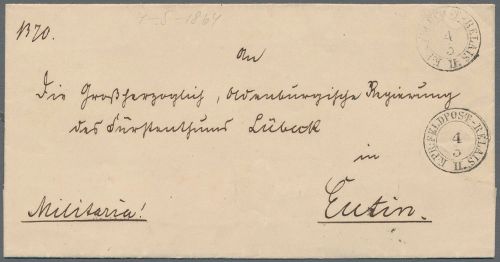 1370.
4-5-1864
K.PR.FELDPOST-RELAIS
4
5
II.
An
Die Großherzoglich, Oldenburgische Regierung
des Fürstenthums Lübeck
in
K.PR.FELDPOST-RELAIS
4
5
II.
Militaria!
Eutin.